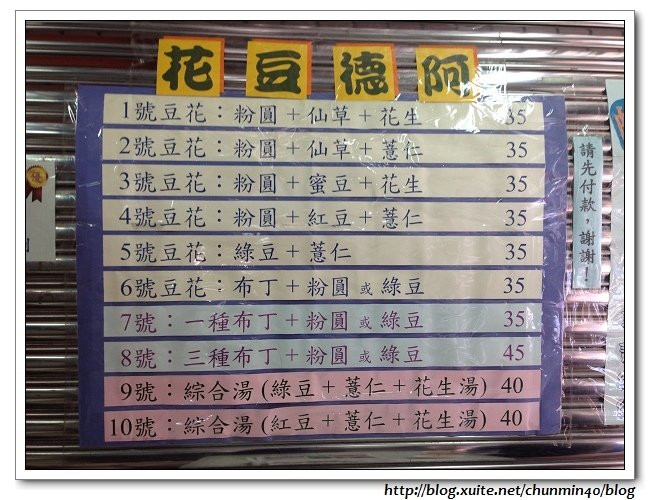 阿德豆花
1號豆花：粉圓＋仙草＋花生 35
2號豆花：粉圓＋仙草＋薏仁 35
3號豆花：粉圓＋蜜豆＋花生 35
4號豆花：粉圓＋紅豆＋薏仁 35
5號豆花：綠豆＋薏仁 35
6號豆花：布丁＋粉圓 或 綠豆 35
7號：一種布丁＋粉圓 或 綠豆 35
8號：三種布丁＋粉圓 或 綠豆 45
9號：綜合湯 (綠豆＋薏仁＋花生湯) 40
10號：綜合湯 (紅豆＋薏仁＋花生湯) 40
請先付款，謝謝！
優
http://blog.xuite.net/chunmin40/blog